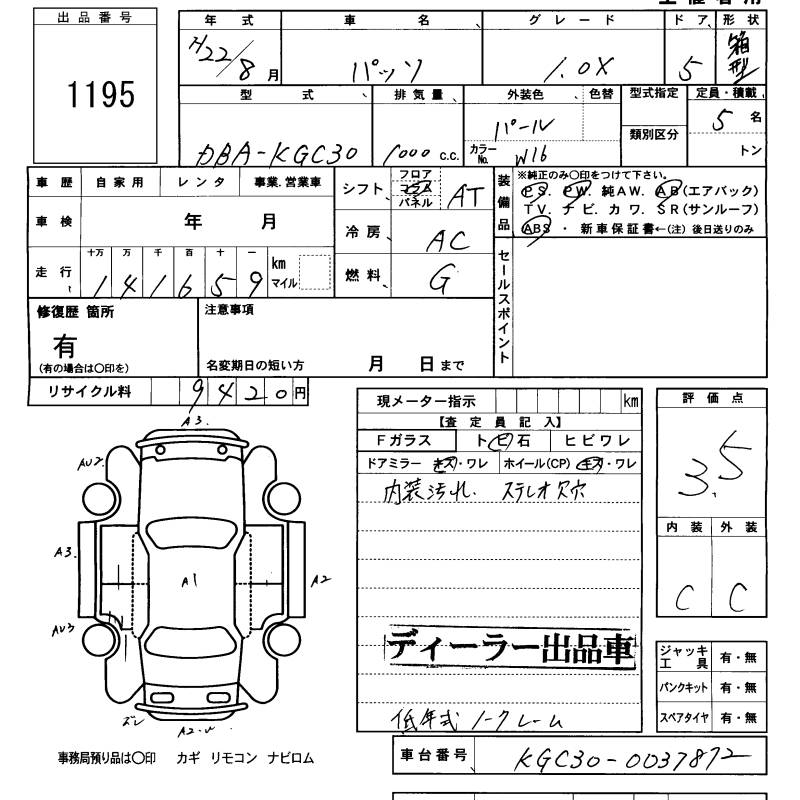 出品番号
1195
年式 車名 グレード ドア 形状
H22/8月 パッソ 1.0X 5 箱型
型式 排気量 外装色 色替 型式指定 定員・積載
類別区分
DBA-KGC30 1000 c.c. パール カラーNo. W16 5名
トン
車歴 自家用 レンタ 事業.営業車
車検 年 月
走行 十万 万 千 百 十 一
141659 km マイル
シフト フロア コラム パネル AT
冷房 AC
燃料 G
装備品 ※純正のみ○印をつけて下さい。
PS. PW. 純AW. AB(エアバック)
TV. ナビ. カワ. SR(サンルーフ)
ABS ・ 新車保証書←(注) 後日送りのみ
セールスポイント
修復歴 箇所
有
(有の場合は○印を)
注意事項
名変期日の短い方 月 日まで
リサイクル料 9420円
現メーター指示 km
【査定員記入】
Fガラス ト ビ 石 ヒビワレ
ドアミラー キズ・ワレ ホイール(CP) キズ・ワレ
内装汚れ. ステレオ欠穴
ディーラー出品車
低年式 ノークレーム
評価点
3.5
内装 外装
C C
ジャッキ工具 有・無
パンクキット 有・無
スペアタイヤ 有・無
A3.
AU2
A3.
A1
A2
AU3
ズレ
事務局預り品は○印 カギ リモコン ナビロム
車台番号 KGC30-0037872